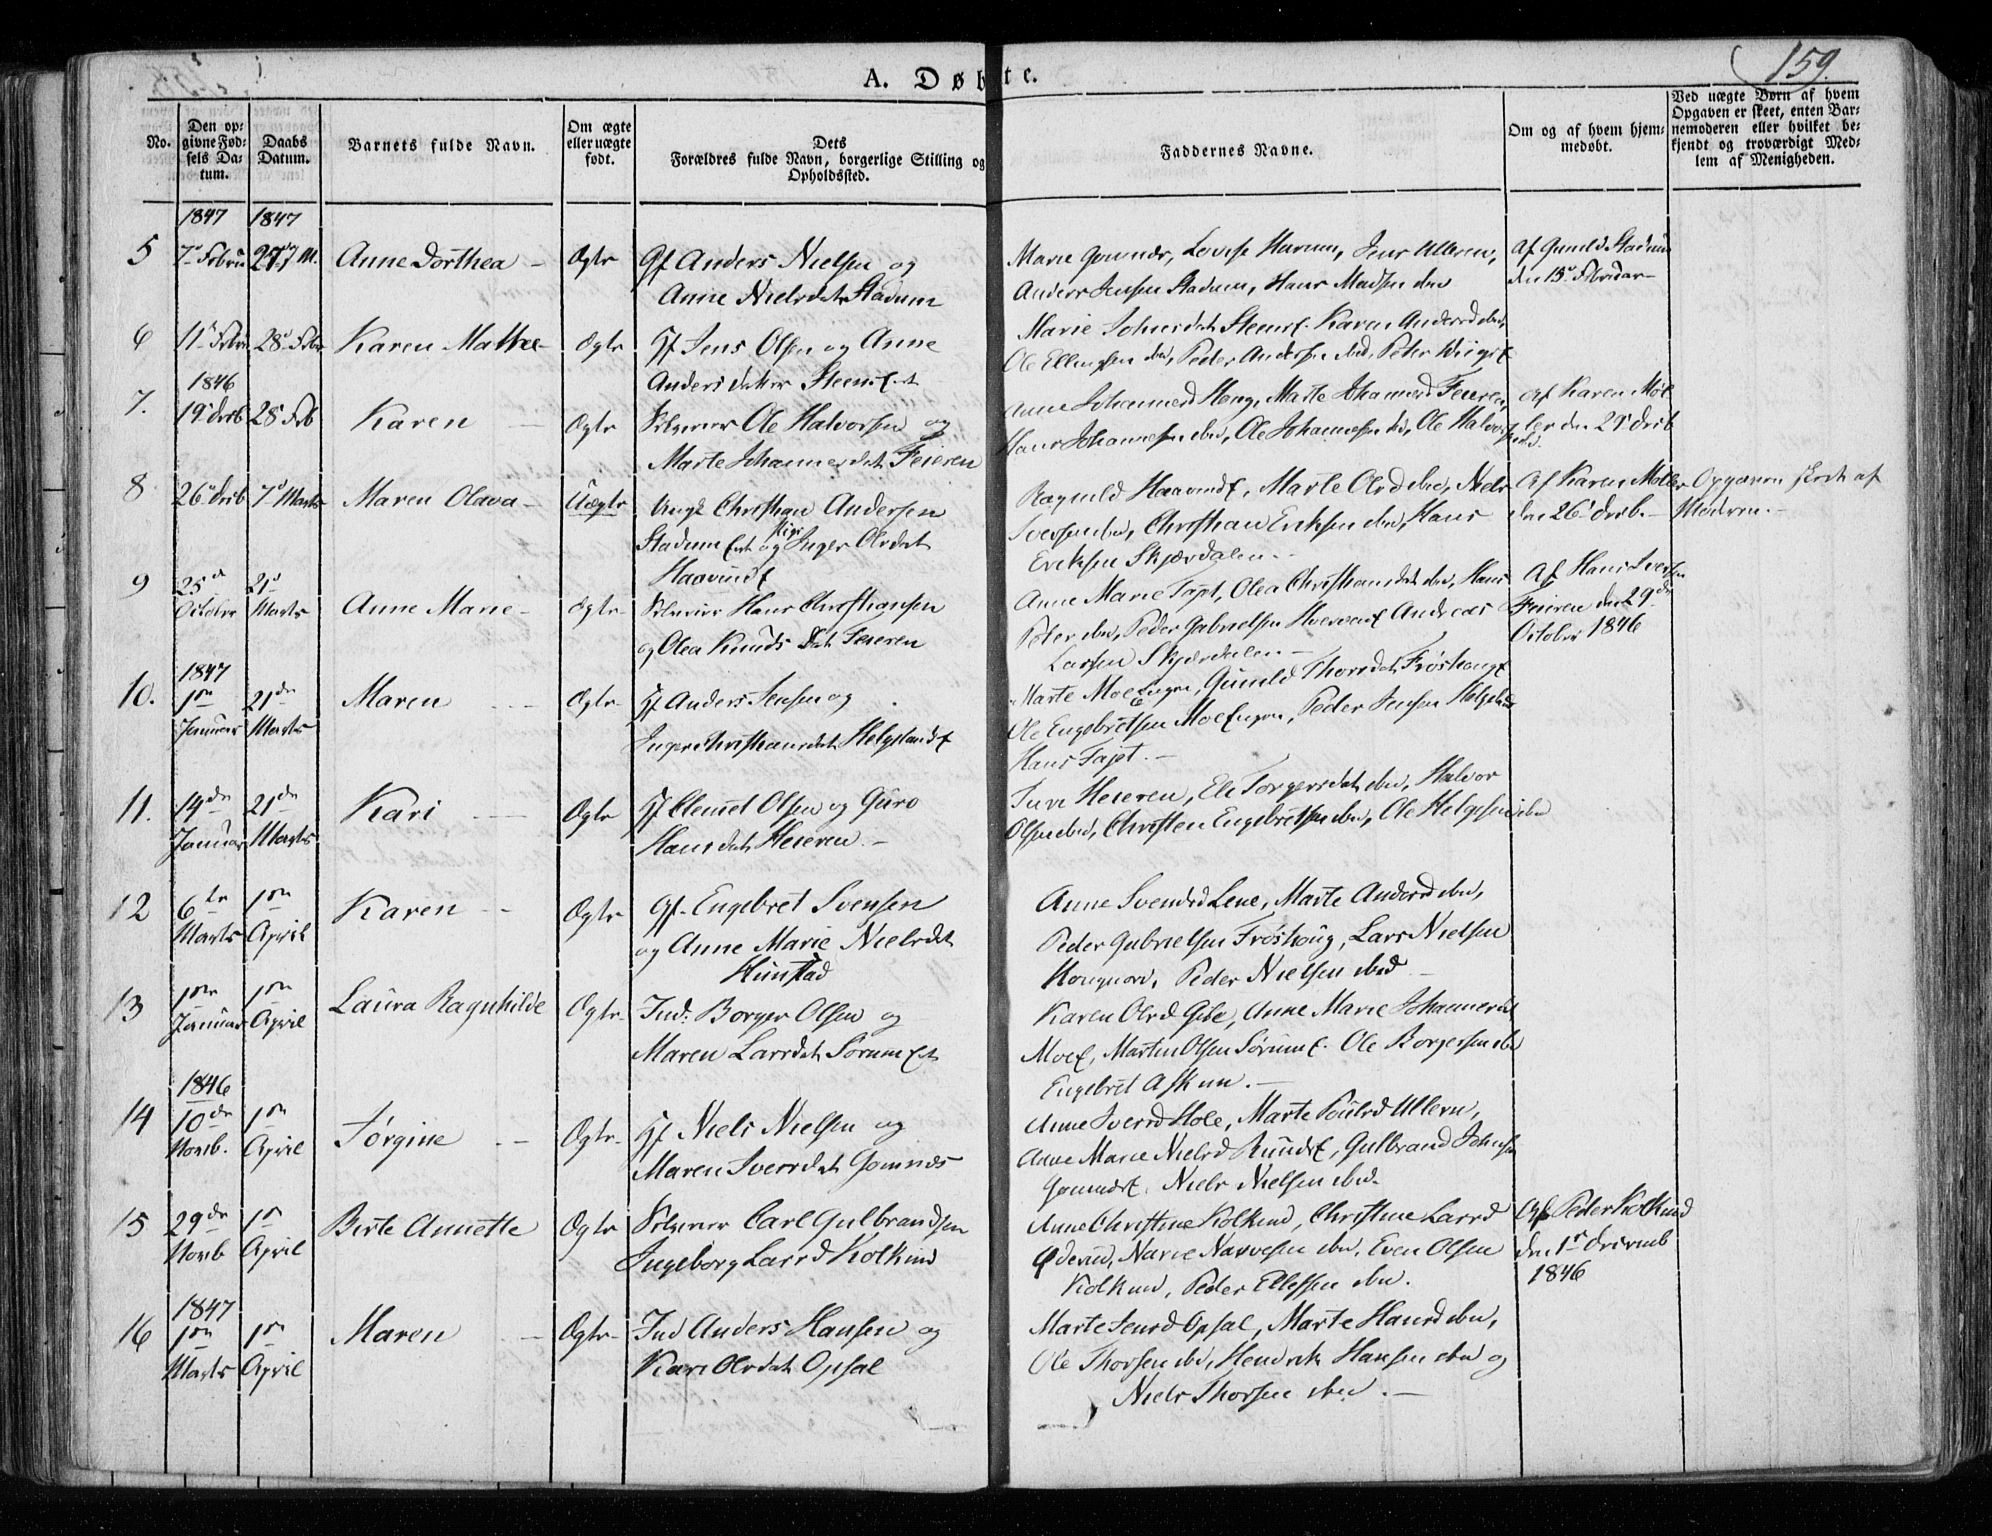 159.
A. Døbte.
No.
Den opgivne Fødsels Datum.
Daabs Datum.
Barnets fulde Navn.
Om ægte eller uægte født.
Dets Forældres fulde Navn, borgerlige Stilling og Opholdssted.
Faddernes Navne.
Om og af hvem hjemmedøbt.
Ved uægte Børn af hvem Opgaven er skeet, enten Barnemoderen eller hvilket bekjendt og troværdigt Medlem af Menigheden.
1847 1847
5 Anne Dorthea Ægte Gf Anders Nielsen og
Anne Nielsdat Stadum
Marie Gomnæs, Lovise Harum, Jens Ullern,
Anders Jensen Stadum, Hans Madsen ibd
Af Gunild Stadum
den 13 Februar
6 28 Febr Karen Mathee Ægte Jens Olsen og Anne
Andersdatter
Karen Andersd ibd,
Ole Ellingsen ibd, Peder Andersen ibd, Peter
1846
7. 19 Decb 28 Feb Karen Ægte Ole Halvorsen og
Marte Johannesdat Feieren
Anne Johannesd Houg, Marte Johannesd Feieren,
Hans Johannesen ibd, Ole Johannesen ibd, Ole Halvorsen ibd.
Af Karen Møller den 29 Decb
8 26 Decb 7 Marts Maren Olava Uægte Ungk Christian Andersen
Stadum og Pige Inger Olsdat
Ragnild Haavind, Marte Olsd ibd, Niels
Iversen ibd, Christian Eriksen ibd, Hans
Eriksen Skjærdalen
Af Karen Møller
den 26 Decb.
Opgaven skede af
Moderen.
9 25 October 21 Marts Anne Marie Ægte Hans Christiansen
og Olea Knuds Dat Feieren
Anne Marie Fapt, Olea Christiansdat ibd, Hans
Peter ibd, Peder Gabrielsen Andreas
Larsen Skjærdalen
Af Hans Iversen
Feieren den 29de
October 1846
1847
10. 1ste Januar 21de Marts Maren Ægte Anders Jensen og
Inger Christiansdat Helgeland
Marte Moe, Gunild Thorsdat Frøshoug
Ole Engebretsen Moe, Peder Jensen
Hans Fapt.
11. 14de Januar 21de Marts Kari Ægte Clemet Olsen og Guro
Hansdat Heieren
Heieren, Eli Torgersdat ibd, Halvor
Olsen ibd, Christen Engebretsen ibd, Ole Helgesen ibd
12 6te Marts 1ste April Karen Ægte Gf. Engebret Svensen
og Anne Marie Nielsdat
Hunstad
Anne Svendsd Lene, Marte Andersd ibd,
Peder Gabrielsen Frøshoug, Lars Nielsen
Peder Nielsen ibd
13 1ste Januar 1ste April Laura Ragnhilde Ægte Ind: Borger Olsen og
Maren Larsdat Sørum
Karen Olsd Gibe, Anne Marie Johannesd
Moe, Martin Olsen Sørum. Ole Borgersen ibd
Engebret Asken.
1846
14 10de Novb. 1ste April Jørgine Ægte Niels Nielsen og
Maren Iversdat Gomnæs
Anne Iversd Hole, Marte Poulsd Ullern,
Anne Marie Nielsd, Gulbrand Johnsen
Gomnæs. Niels Nielsen ibd.
15 29de Novb 1ste April Birte Annette Ægte Carl Gulbrandsen
Ingeborg Larsd Kolkind
Anne Christine Kolkind, Christine Larsd
Narve Narvesen ibd, Even Olsen
Kolkind, Peder Ellefsen ibd.
Af Peder Kolkind
den 1ste Decemb
1846
1847
16 1ste Marts 1ste April Maren Ægte Ind Anders Hansen og
Kari Olsdat Opsal
Marte Jensd Opsal, Marte Hansd ibd,
Ole Thorsen ibd, Hendrik Hansen ibd og
Niels Thorsen ibd.